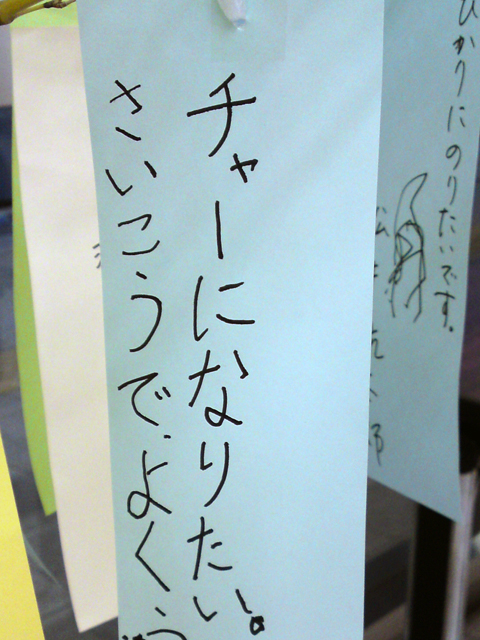 ひかりにのりたいです。
チャーになりたい。
さいこうで、よくう